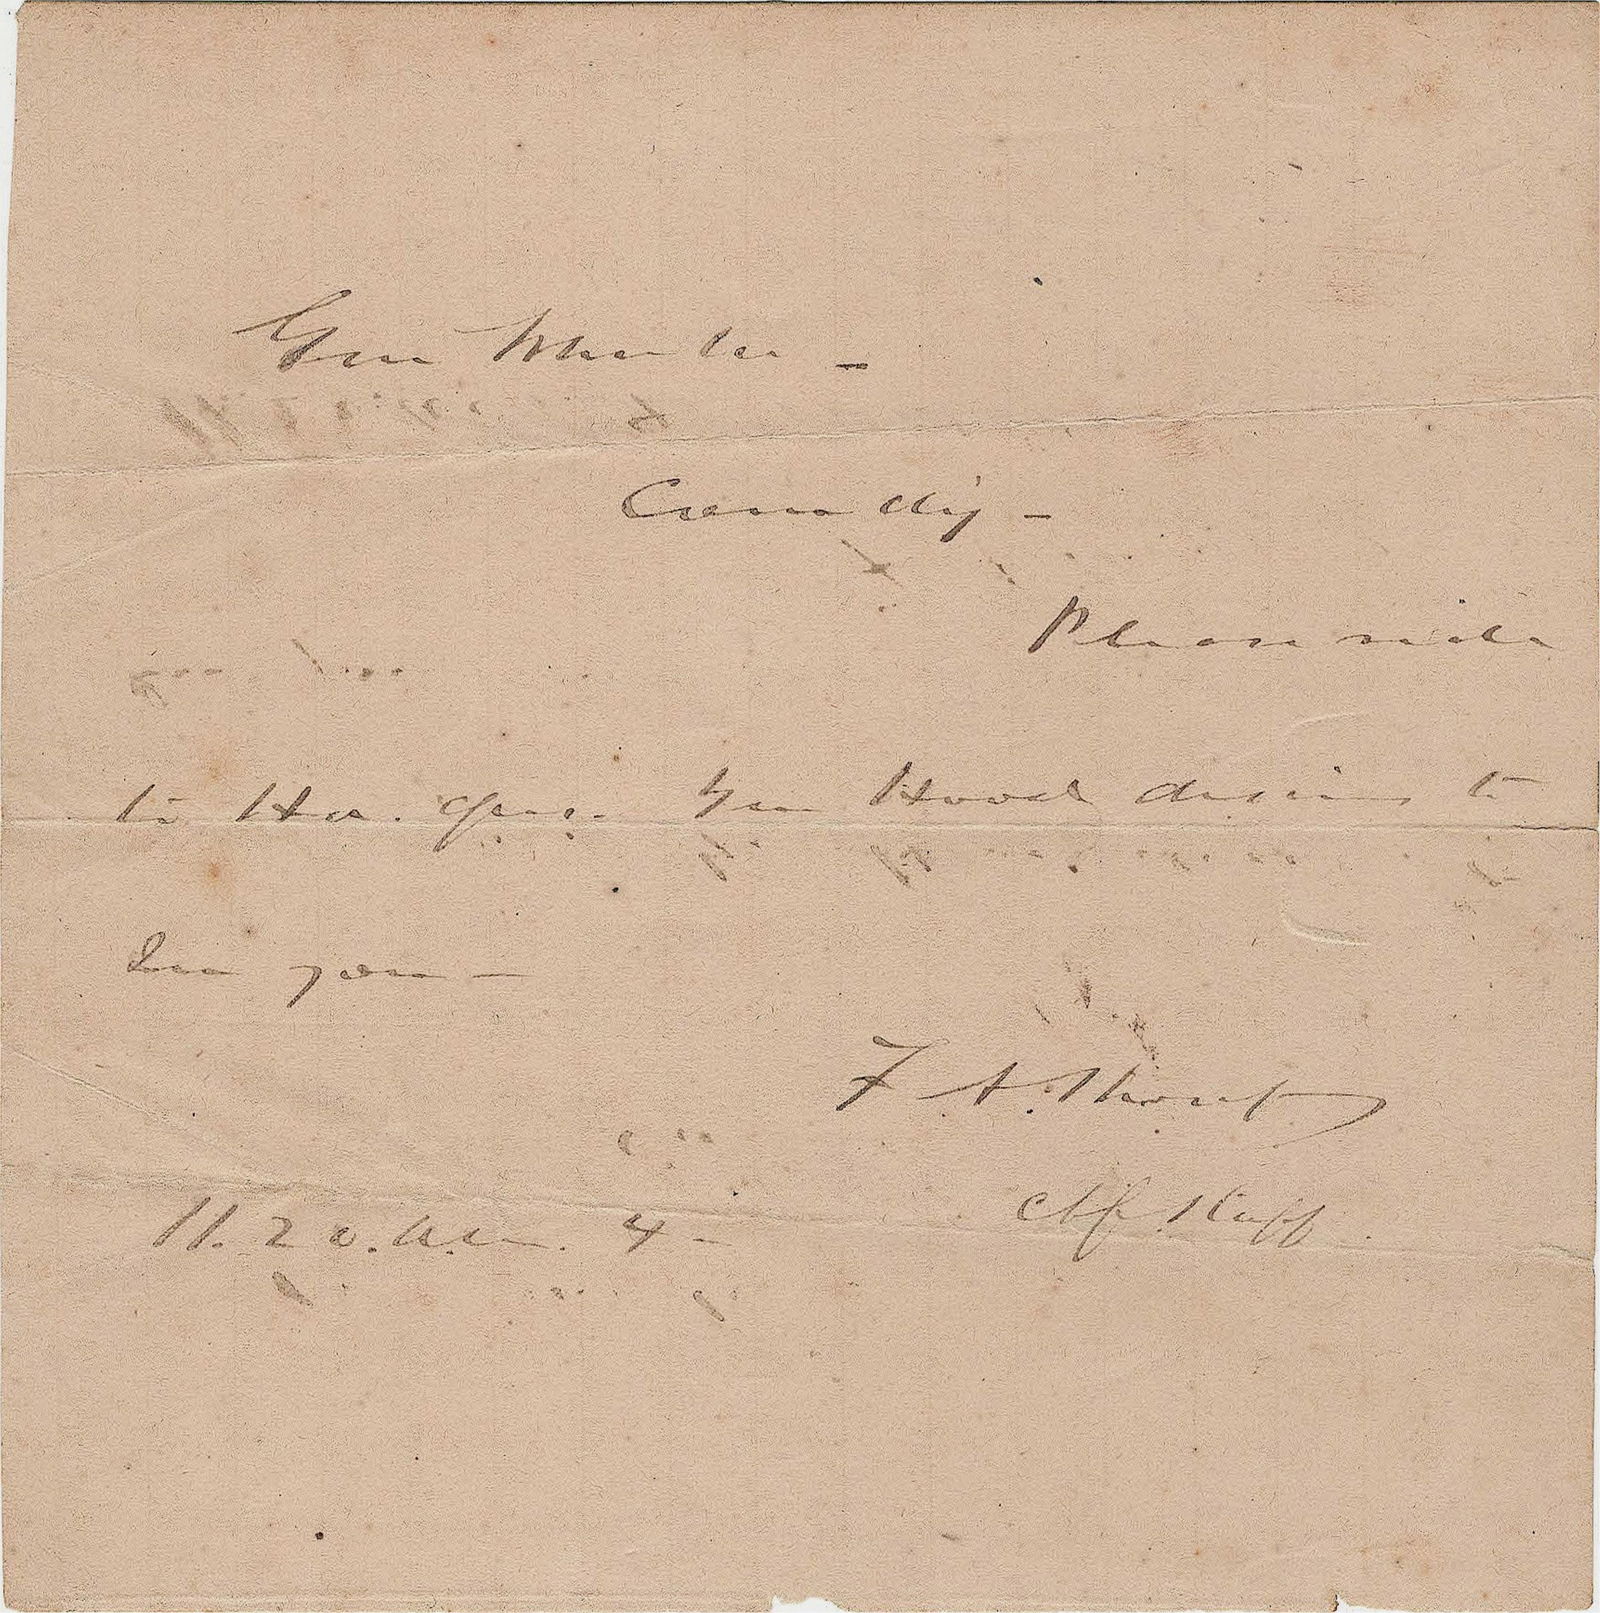 Gen Wheeler –
Comdg –
Please ride
to Hd. Qrs. Gen Hood desires to
see you –
F. A. Shoup
Chf. Staff.
11.20. A.M. 4 –